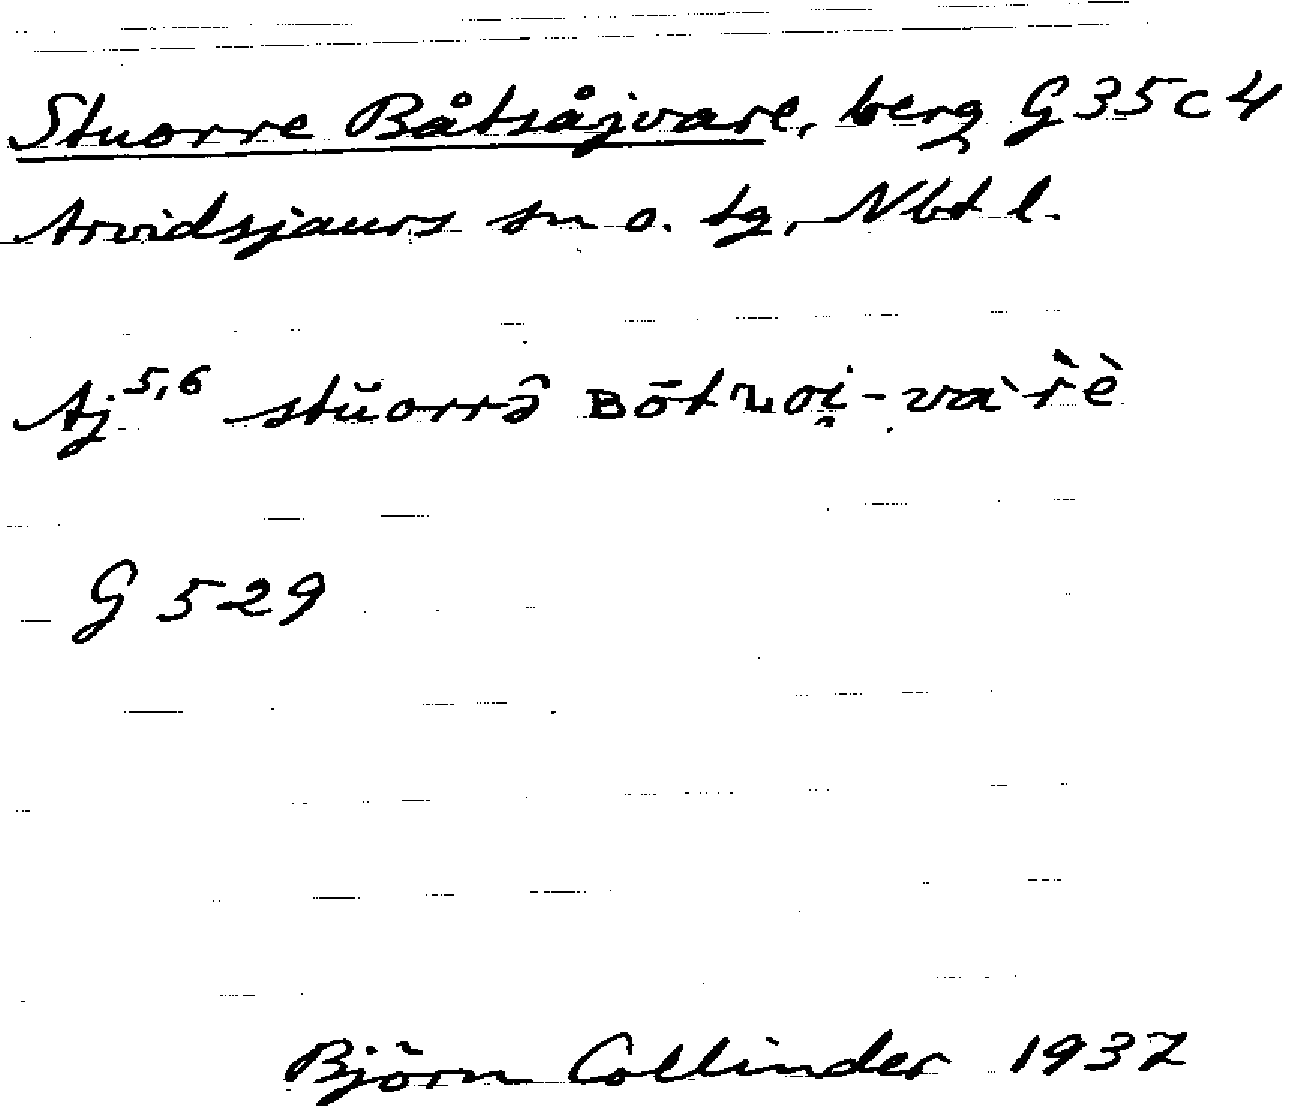 Stuorre Båtsåjvare, berg G 35 c 4
Arvidsjaurs sn o. tg, Nbt l.
Aj 5,6 stŭorrə̂ ʙōtsoi̯-vàr̀è
G 529
Björn Collinder 1937